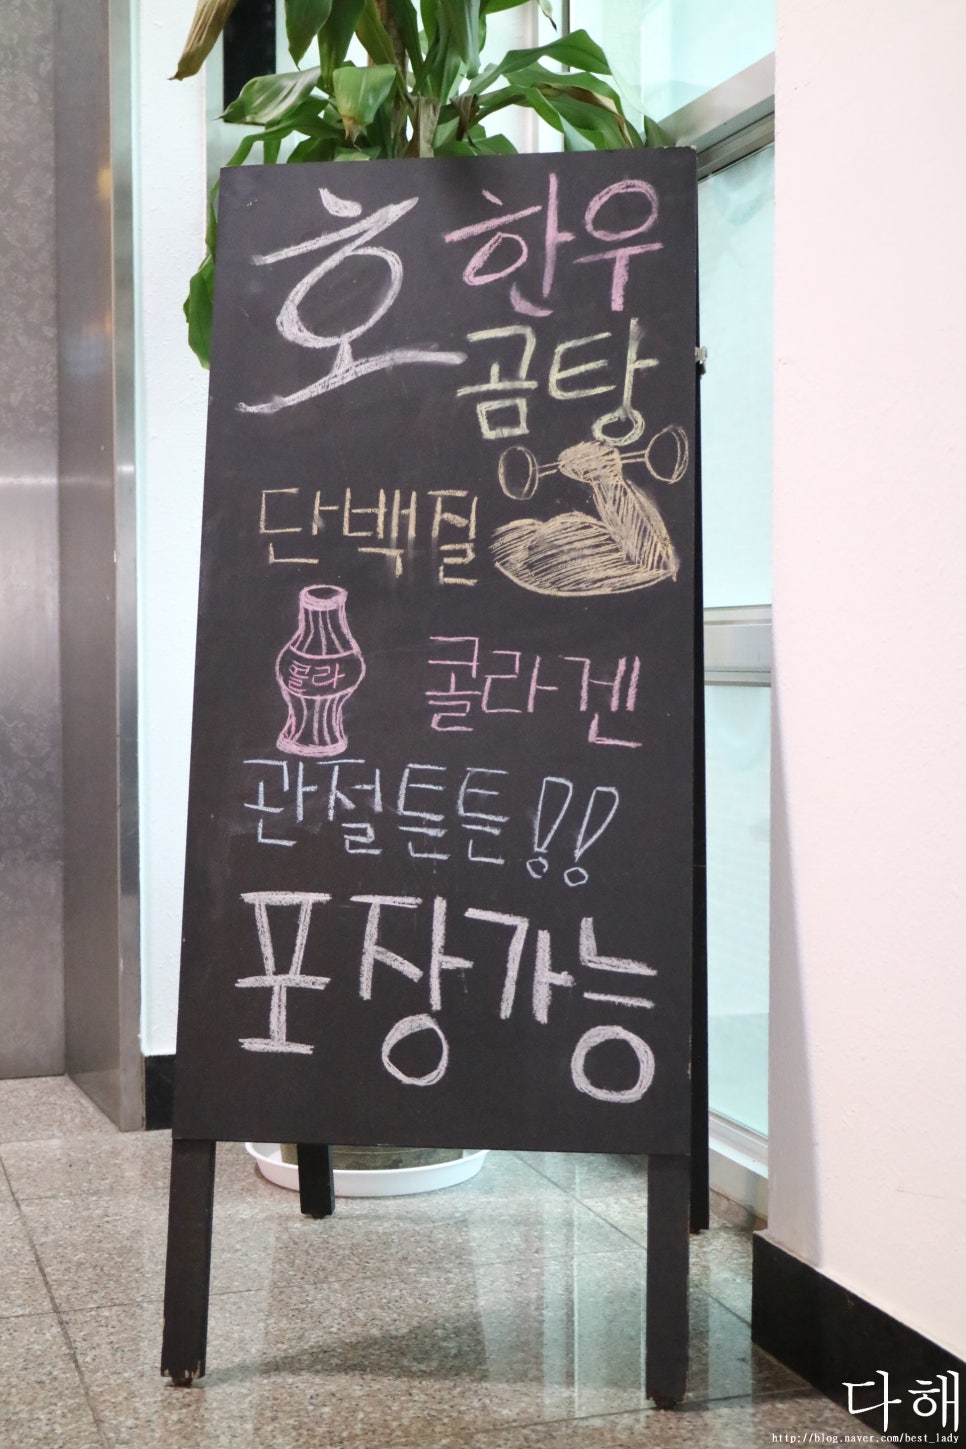 호 한우
곰탕
단백질
콜라
콜라겐
관절튼튼!!
포장가능
다해
http://blog.naver.com/best_lady